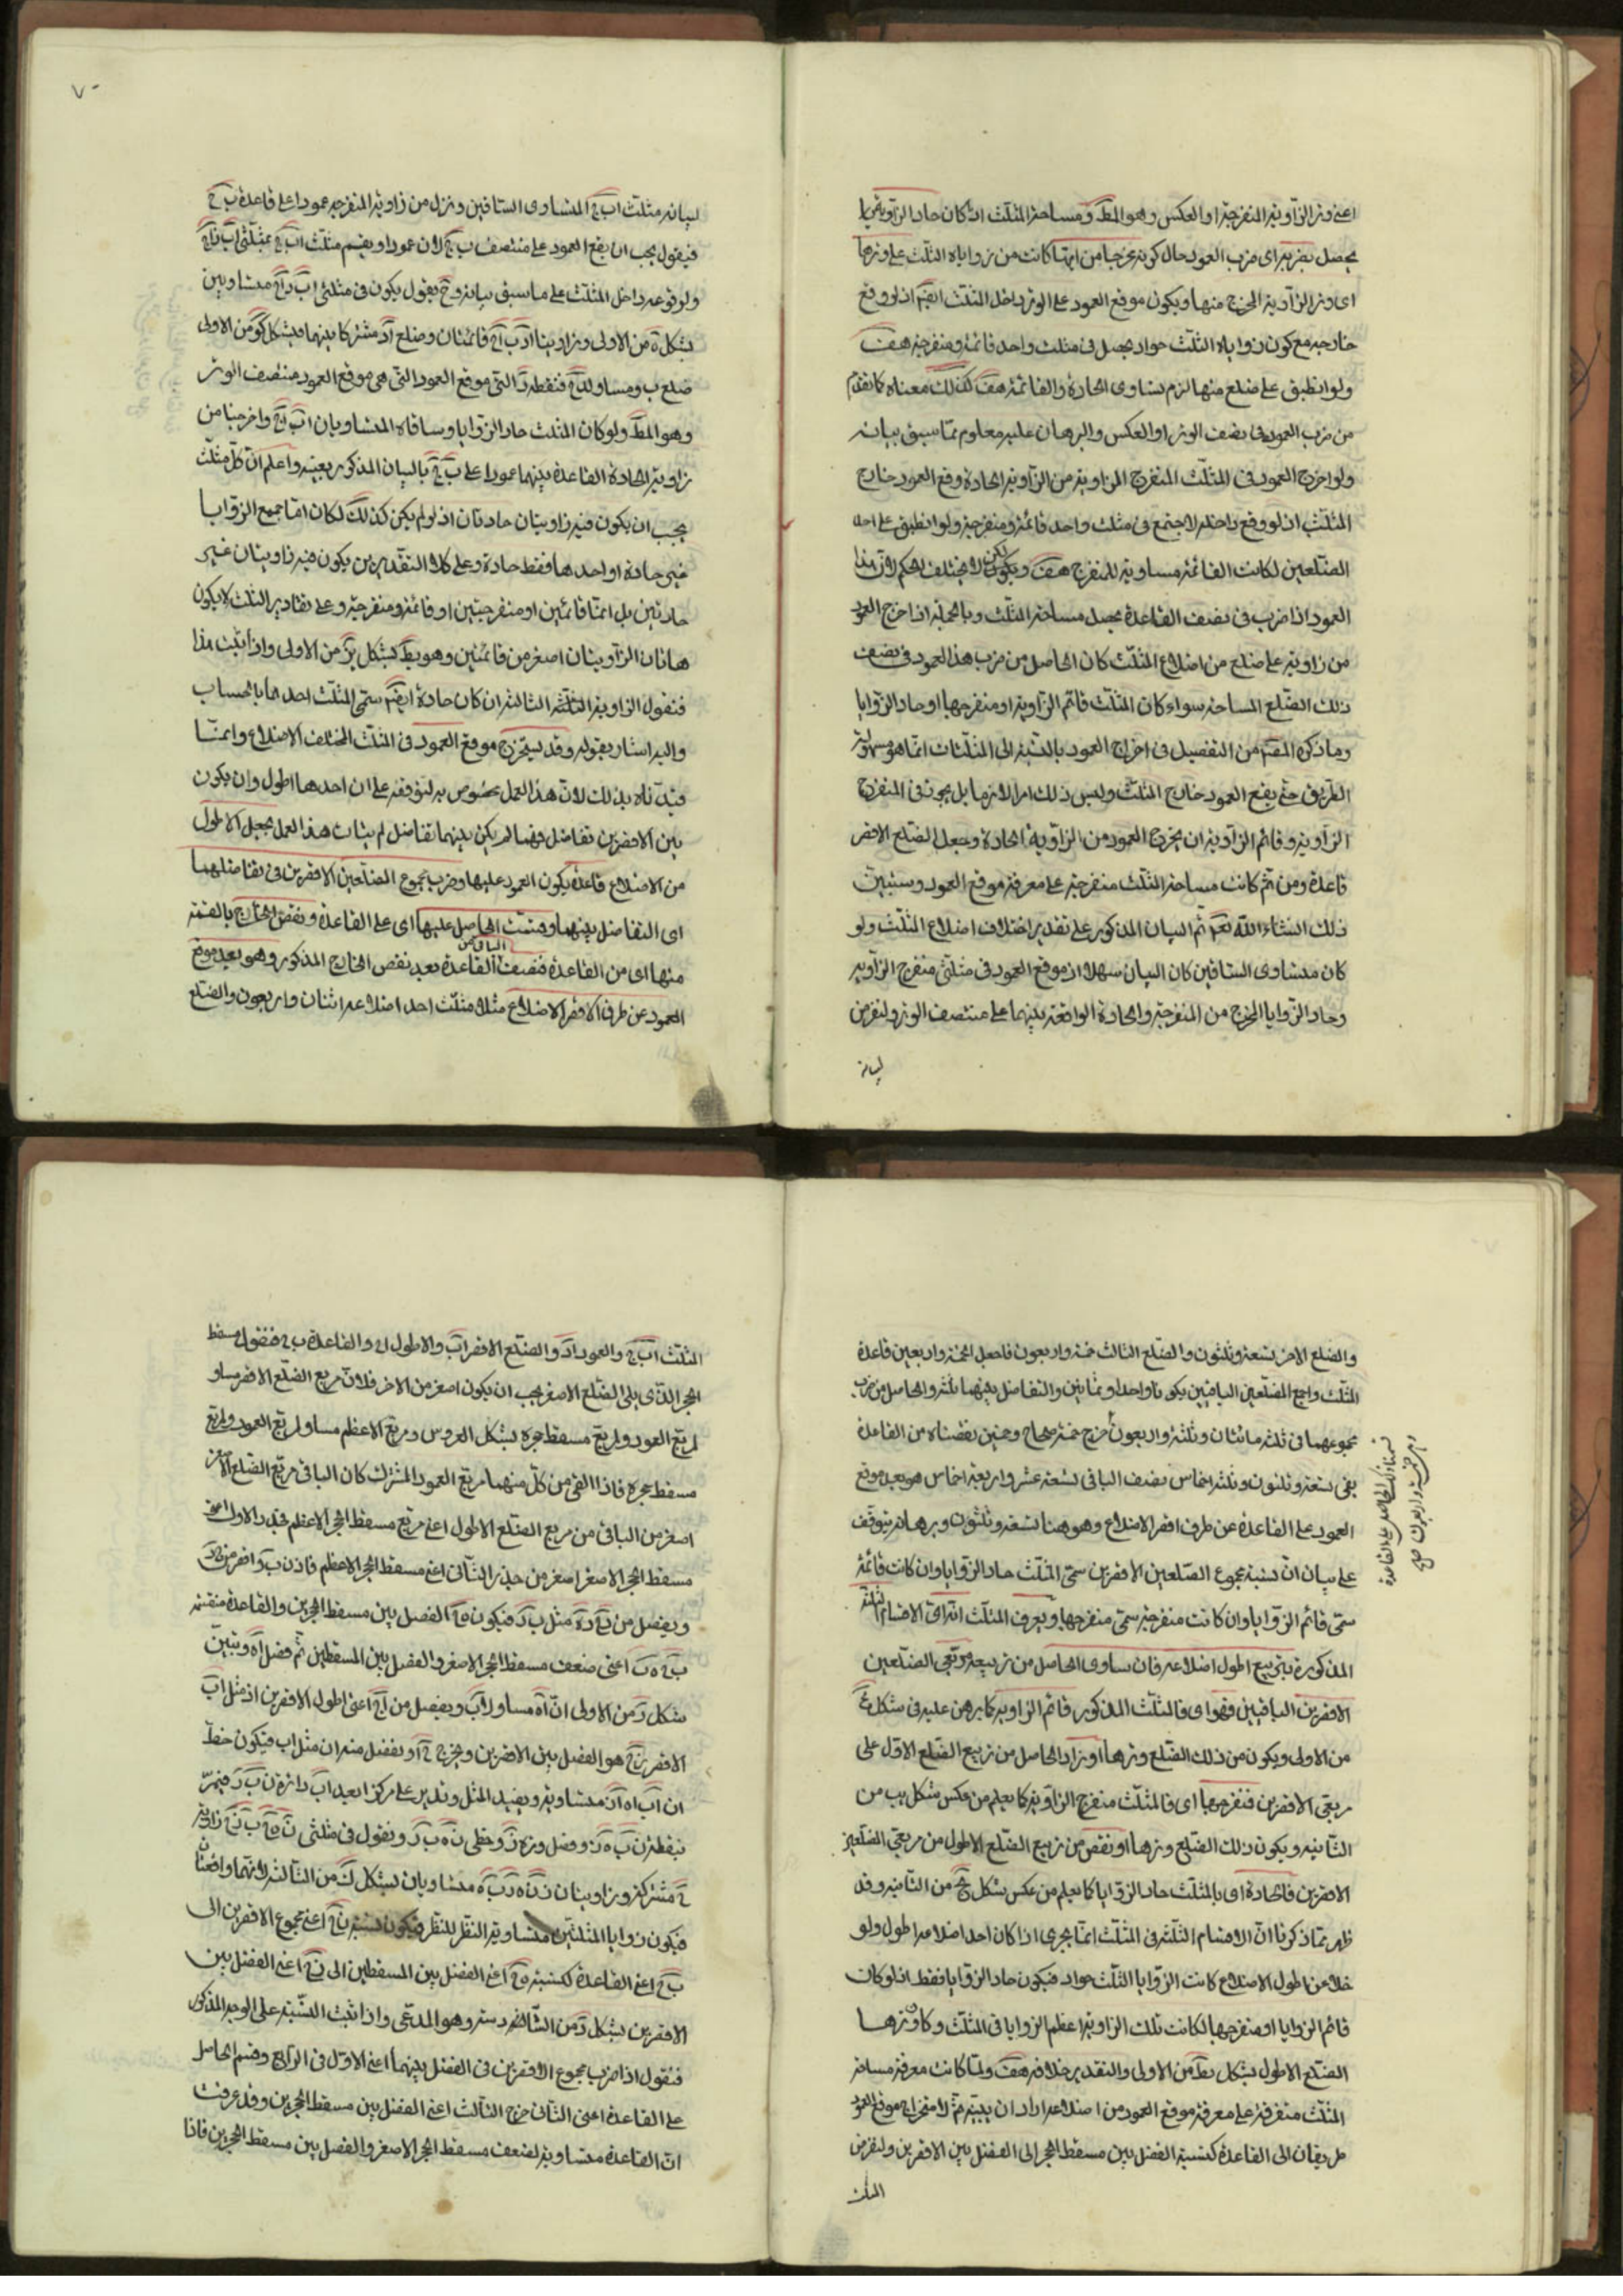 اعنى وتر الزاوية المنفرجة او العكس وهو المط ومساحة المثلث ان كان حاد الزاوية
يحصل بضربه اى ضرب العمود حال كونه مخرجا من ايتها كانت من زواياه الثلث على وترها
اى وتر الزاوية المخرج منها ويكون موقع العمود على الوتر داخل المثلث ايضا اذ لو وقع
خارجه مع كون زواياه الثلث حواد يحصل فى مثلث واحد قائمة ومنفرجة هف
ولو انطبق على ضلع منها لزم تساوى الحادة والقائمة هف كذلك معناه كما تقدم
من ضرب العمود فى نصف الوتر او العكس والبرهان عليه معلوم مما سبق بيانه
ولو اخرج العمود فى المثلث المنفرج الزاوية من الزاوية الحادة وقع العمود خارج
المثلث اذ لو وقع داخله لاجتمع فى مثلث واحد قائمة ومنفرجة ولو انطبق على احد
الضلعين لكانت القائمة مساوية للمنفرج هف ويكون لكن لا يختلف الحكم لان هذا
العمود اذا ضرب فى نصف القاعدة يحصل مساحة المثلث وبالجملة اذا اخرج العمود
من زاوية على ضلع من اضلاع المثلث كان الحاصل من ضرب هذا العمود فى نصف
ذلك الضلع المساحة سواء كان المثلث قائم الزاوية او منفرجها او حاد الزوايا
وما ذكره المص من التفصيل فى اخراج العمود بالنسبة الى المثلثات انما هو سهولة
الطريق حتى يقع العمود خارج المثلث وليس ذلك امرا لازما بل يجوز فى المنفرج
الزاوية وقائم الزاوية ان يخرج العمود من الزاوية الحادة وجعل الضلع الاقصر
قاعدة ومن ثم كانت مساحة المثلث متفرعة على معرفة موقع العمود وسنبين
ذلك انشاء الله تعم ثم البيان المذكور على تقدير اختلاف اضلاع المثلث ولو
كان متساوى الساقين كان البيان سهلا اذ موقع العمود فى مثلثى منفرج الزاوية
وحاد الزوايا المخرج من المنفرجة والحادة الواقعة بينهما على منتصف الوتر ولنفرض
لبيانه
٧٠
لبيانه مثلث اب ج المتساوى الساقين وننزل من زاوية المنفرجة عمودا على قاعدة ب ج
فيقول يجب ان يقع العمود على منتصف ب ج لان عمود او يقسم مثلث اب ج بمثلثى
ولوقوعه داخل المثلث على ما سبق بيانه وح يقول يكون فى مثلثى اب د اج د متساويين
بشكل ه من الاولى وزاويتا ادب ادج قائمتان وضلع اد مشتركا بينهما فبشكل كو من الاولى
ضلع ب د مساو لدج فنقطة د التى موقع العمود التى هى موقع العمود منتصف الوتر
وهو المط ولو كان المثلث حاد الزوايا وساقاه المتساويان اب اج واخرجنا من
زاوية الحادة القاعدة بينهما عمودا على ب ج بالبيان المذكور بعينه واعلم ان كل مثلث
يجب ان يكون فيه زاويتان حادتان اذ لو لم يكن كذلك لكان اما جميع الزوايا
غير حادة او احدها فقط حادة وعلى كلا التقديرين يكون فيه زاويتان غير
حادتين بل اما قائمتين او منفرجتين او قائمة ومنفرجة وعلى تقادير الثلث لا يكون
هاتان الزاويتان اصغر من قائمتين وهو بط بشكل يز من الاولى واذا ثبت هذا
فنقول الزاوية الثلثة الثالثة ان كان حادة ايضا سمى المثلث احدها بالحساب
واليه اشار بقوله وقد يستخرج موقع العمود فى المثلث المختلف الاضلاع وانما
قيدناه بذلك لان هذا العمل مخصوص به لتوقفه على ان احدها اطول وان يكون
بين الاقصرين تفاضل فمها لم يكن بينهما تفاضل لم يتأت هذا العمل بجعل الاطول
من الاضلاع قاعدة يكون العمود عليها وضرب مجموع الضلعين الاقصرين فى تفاضلهما
اى التفاضل بينهما وقسمت الحاصل عليها اى على القاعدة ونقص الخارج بالقسمة
منها اى من القاعدة فنصف الباقى من القاعدة بعد نقص الخارج المذكور وهو بعد موقع
العمود عن طرف الاقصر الاضلاع مثلا مثلث احد اضلاعه اثنان واربعون والضلع
والضلع الاخر تسعة وثلثون والضلع الثالث خمسة واربعون فاجعل الخمسة واربعين قاعدة
المثلث واجمع الضلعين الباقيين يكونا واحدا وثمانين والتفاضل بينهما ثلثة والحاصل من ضرب
مجموعهما فى ثلثة مائتان وثلثة واربعون خرج خمسة صحاح وخمسين نقصناه من القاعدة
بقى تسعة وثلثون وثلثة اخماس نصف الباقى تسعة عشر واربعة اخماس هو بعد موقع
العمود على القاعدة عن طرف اقصر الاضلاع وهو هنا تسعة وثلثون وبرهانه يتوقف
على بيان ان نسبة مجموع الضلعين الاقصرين سمى المثلث حاد الزوايا وان كانت قائمة
سمى قائم الزوايا وان كانت منفرجة سمى منفرجها ويعرف المثلث انه اى الاقسام الثلثة
المذكورة بتربيع اطول اضلاعه فان ساوى الحاصل من تربيعه مربعى الضلعين
الاقصرين الباقيين فهو اى فالمثلث المذكور قائم الزاوية كما برهن عليه فى شكل
من الاولى ويكون من ذلك الضلع وترها او زاد الحاصل من تربيع الضلع الاول على
مربعى الاقصرين فمنفرجها اى فالمثلث منفرج الزاوية كما يعلم من عكس شكل يب من
الثانية ويكون ذلك الضلع وترها او نقص من تربيع الضلع الاطول من مربعى الضلعين
الاقصرين فالحادة اى بالمثلث حاد الزوايا كما يعلم من عكس شكل يج من الثانية وقد
ظهر مما ذكرنا ان الاقسام الثلثة فى المثلث انما يجرى اذا كان احد اضلاعه اطول ولو
خلا عن اطول الاضلاع كانت الزوايا الثلث حواد فيكون حاد الزوايا فقط اذ لو كان
قائم الزوايا او منفرجها لكانت تلك الزاوية اعظم الزوايا فى المثلث وكان وترها
الضلع الاطول بشكل يط من الاولى والتقدير خلافه هف ولما كانت معرفة مساحة
المثلث متفرقة على معرفة موقع العمود من اضلاعه اراد ان يبينه ثم لاستخراج موقع العمود
طريقان الى القاعدة كنسبة الفضل بين مسقط الحجر الى الفضل بين الاقصرين ولنفرض
المثلث
قسمنا ذلك الحاصل على القاعدة
وهى خمسة واربعون صح
المثلث اب ج والعمود اد والضلع الاقصر اب والاطول اج والقاعدة ب ج فنقول مسقط
الحجر الذى يلى الضلع الاصغر يجب ان يكون اصغر من الاخر فلان مربع الضلع الاقصر مساو
لمربع العمود ولمربع مسقط حجره بشكل العروس ومربع الاعظم مساو لمربع العمود ولمربع
مسقط حجره فاذا القى من كل منهما مربع العمود المشترك كان الباقى من مربع الضلع الاصغر
اصغر من الباقى من مربع الضلع الاطول اعنى مربع مسقط الحجر الاعظم فجذر الاول اعنى
مسقط الحجر الاصغر اصغر من جذر الثانى اعنى مسقط الحجر الاعظم فاذن ب د اقصر من ج د
ويفصل من د ج د ه مثل ب د فيكون ه ج الفضل بين مسقط الحجرين والقاعدة منقسمة
ب ه ج اعنى ضعف مسقط الحجر الاصغر والفضل بين المسقطين ثم فصل اه ويتبين
بشكل د من الاولى ان اه مساو لاب ويفصل من اج اعنى اطول الاقصرين از مثل اب
الاقصر زج هو الفضل بين الاقصرين ويخرج ج ا ويفضل منه ان مثل اب فيكون خط
ان اب اه از متساوية وبقيد المثل وندير على مركز ا ببعد اب دائرة ن ب ز فيمر
بنقطة ن ب ه ز ونصل ه ز وخطى ن ه ب ز ونقول فى مثلثى ن ه ج ب ز ج زاوية
ج مشتركة وزاويتان ز ن ه ز ب ه متساويان بشكل ك من الثالثة لانهما واقعتان
فيكون زوايا المثلثين متساوية النظر للنظر فيكون نسبة ن ج اعنى مجموع الاقصرين الى
ب ج اعنى القاعدة كنسبة ه ج اعنى الفضل بين المسقطين الى ز ج اعنى الفضل بين
الاقصرين بشكل د من السادسة وهو المدعى واذا ثبت النسبة على الوجه المذكور
فنقول اذا ضرب مجموع الاقصرين فى الفضل بينهما اعنى الاول فى الرابع وقسم الحاصل
على القاعدة اعنى الثانى خرج الثالث اعنى الفضل بين مسقط الحجرين وقد عرفت
ان القاعدة متساوية لضعف مسقط الحجر الاصغر والفصل بين مسقط الحجرين فاذا